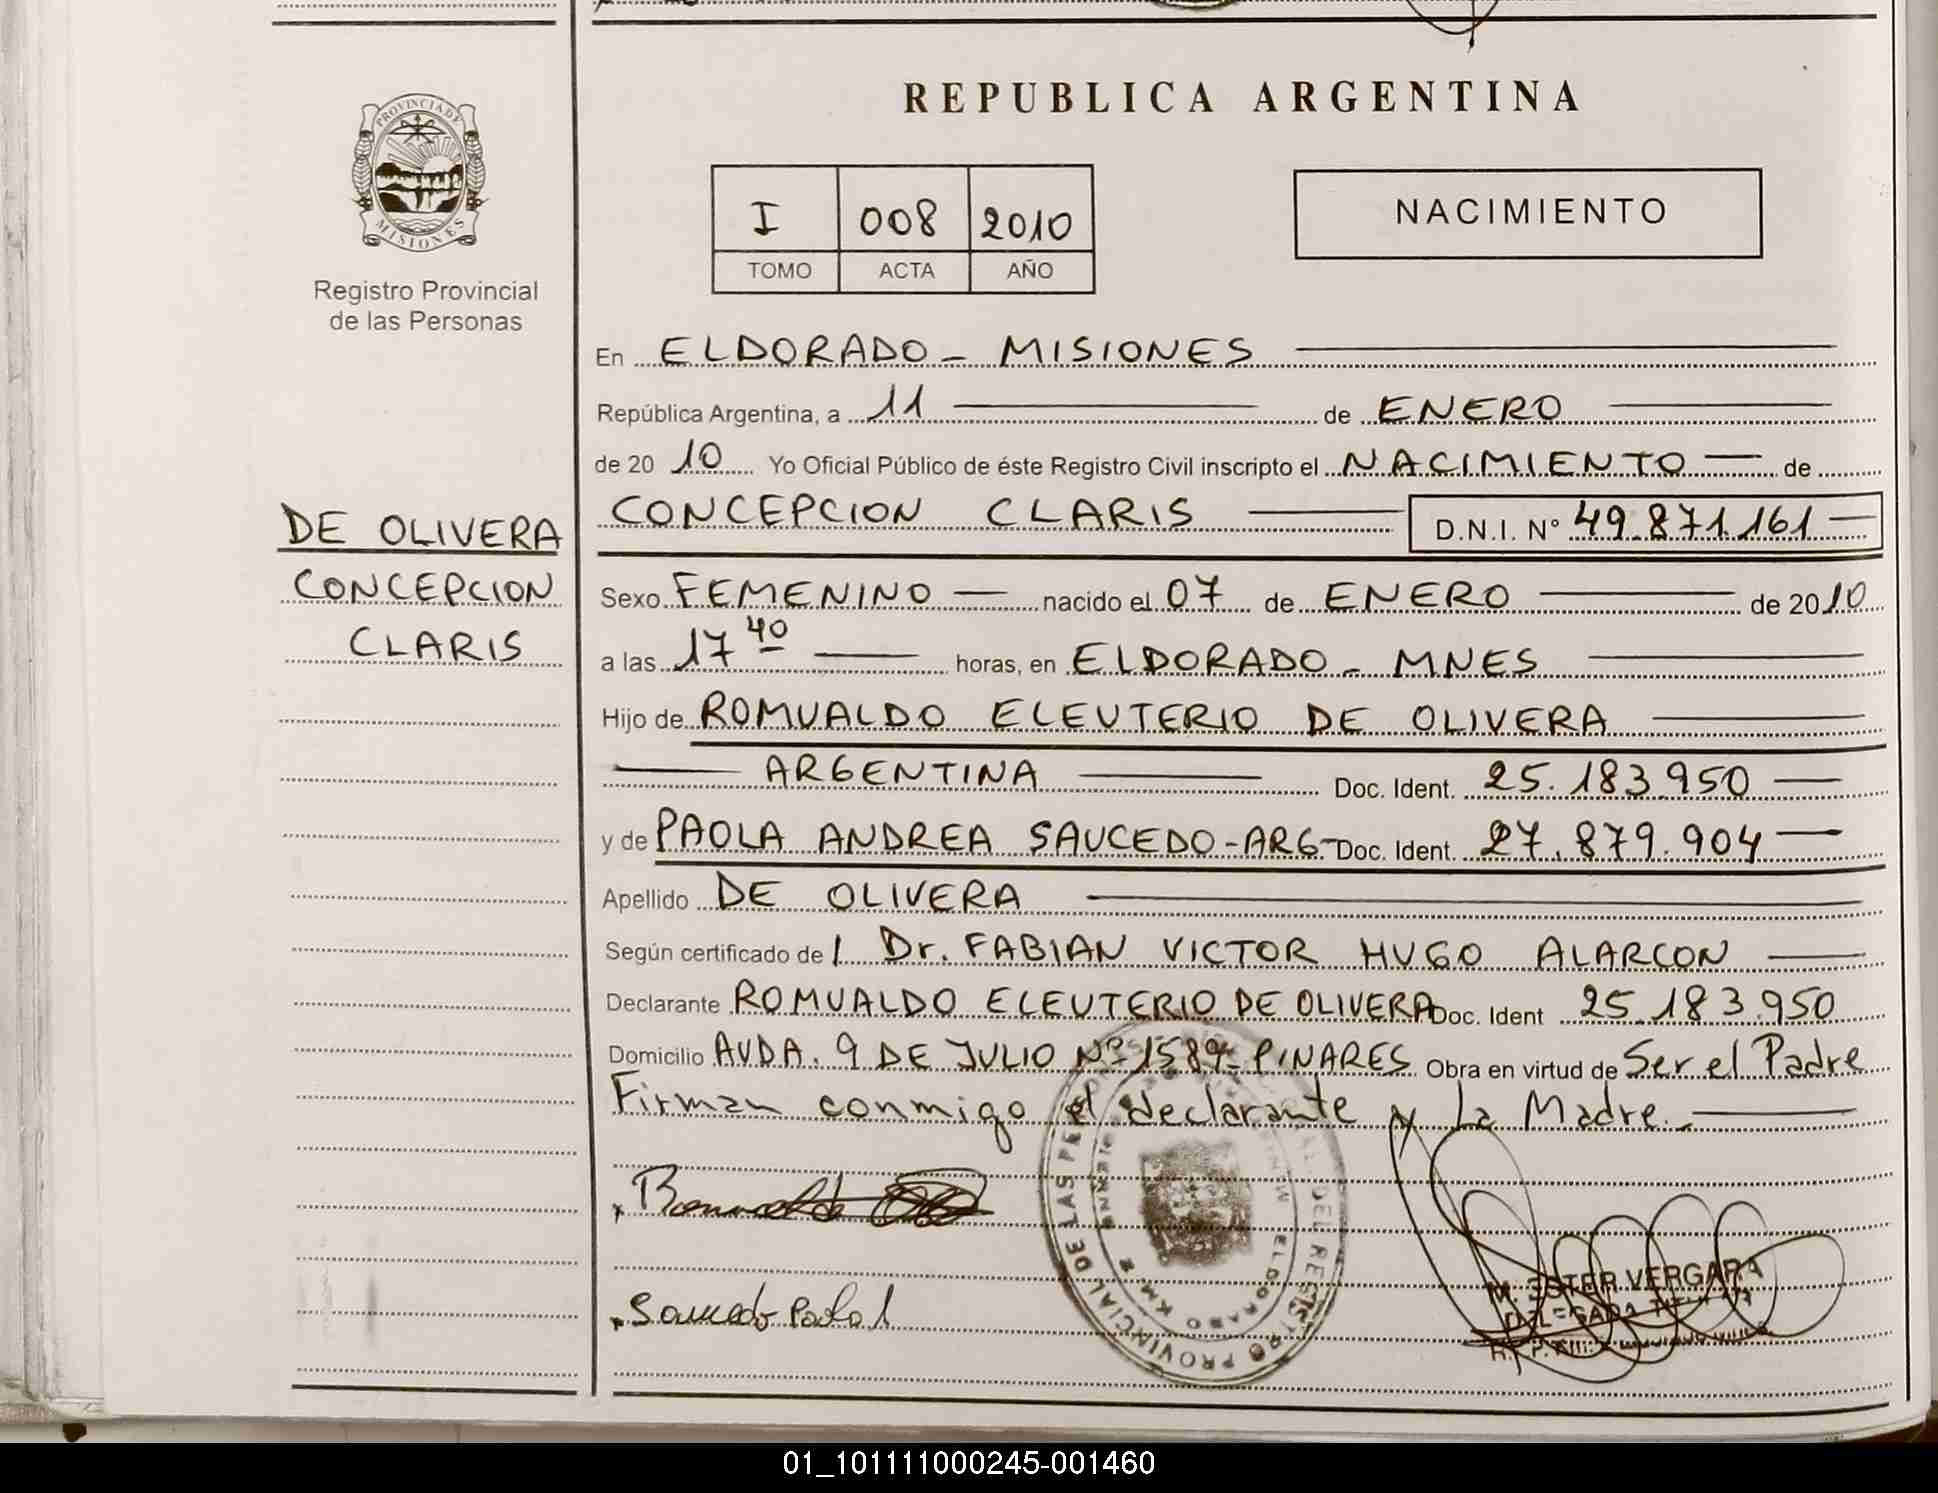 REPUBLICA ARGENTINA
PROVINCIA DE
MISIONES
Registro Provincial
de las Personas
I 008 2010
TOMO ACTA AÑO
NACIMIENTO
En ELDORADO - MISIONES
República Argentina, a 11 de ENERO
de 20 10 Yo Oficial Público de éste Registro Civil inscripto el NACIMIENTO de
CONCEPCION CLARIS D.N.I. N° 49.871.161
DE OLIVERA
CONCEPCION
CLARIS
Sexo FEMENINO nacido el 07 de ENERO de 2010
a las 17 40 horas, en ELDORADO - MNES
Hijo de ROMUALDO ELEUTERIO DE OLIVERA
ARGENTINA Doc. Ident. 25.183.950
y de PAOLA ANDREA SAUCEDO-ARG- Doc. Ident. 27.879.904
Apellido DE OLIVERA
Según certificado de l Dr. FABIAN VICTOR HUGO ALARCON
Declarante ROMUALDO ELEUTERIO DE OLIVERA Doc. Ident 25.183.950
Domicilio AVDA. 9 DE JULIO Nº 1589- PINARES Obra en virtud de Ser el Padre
Firman conmigo el declarante y La Madre.-
Saucedo Paola
REGISTRO PROVINCIAL DE LAS PERSONAS
ELDORADO KM 2
M. ESTER VERGARA
DELEGADA TITULAR
01_101111000245-001460